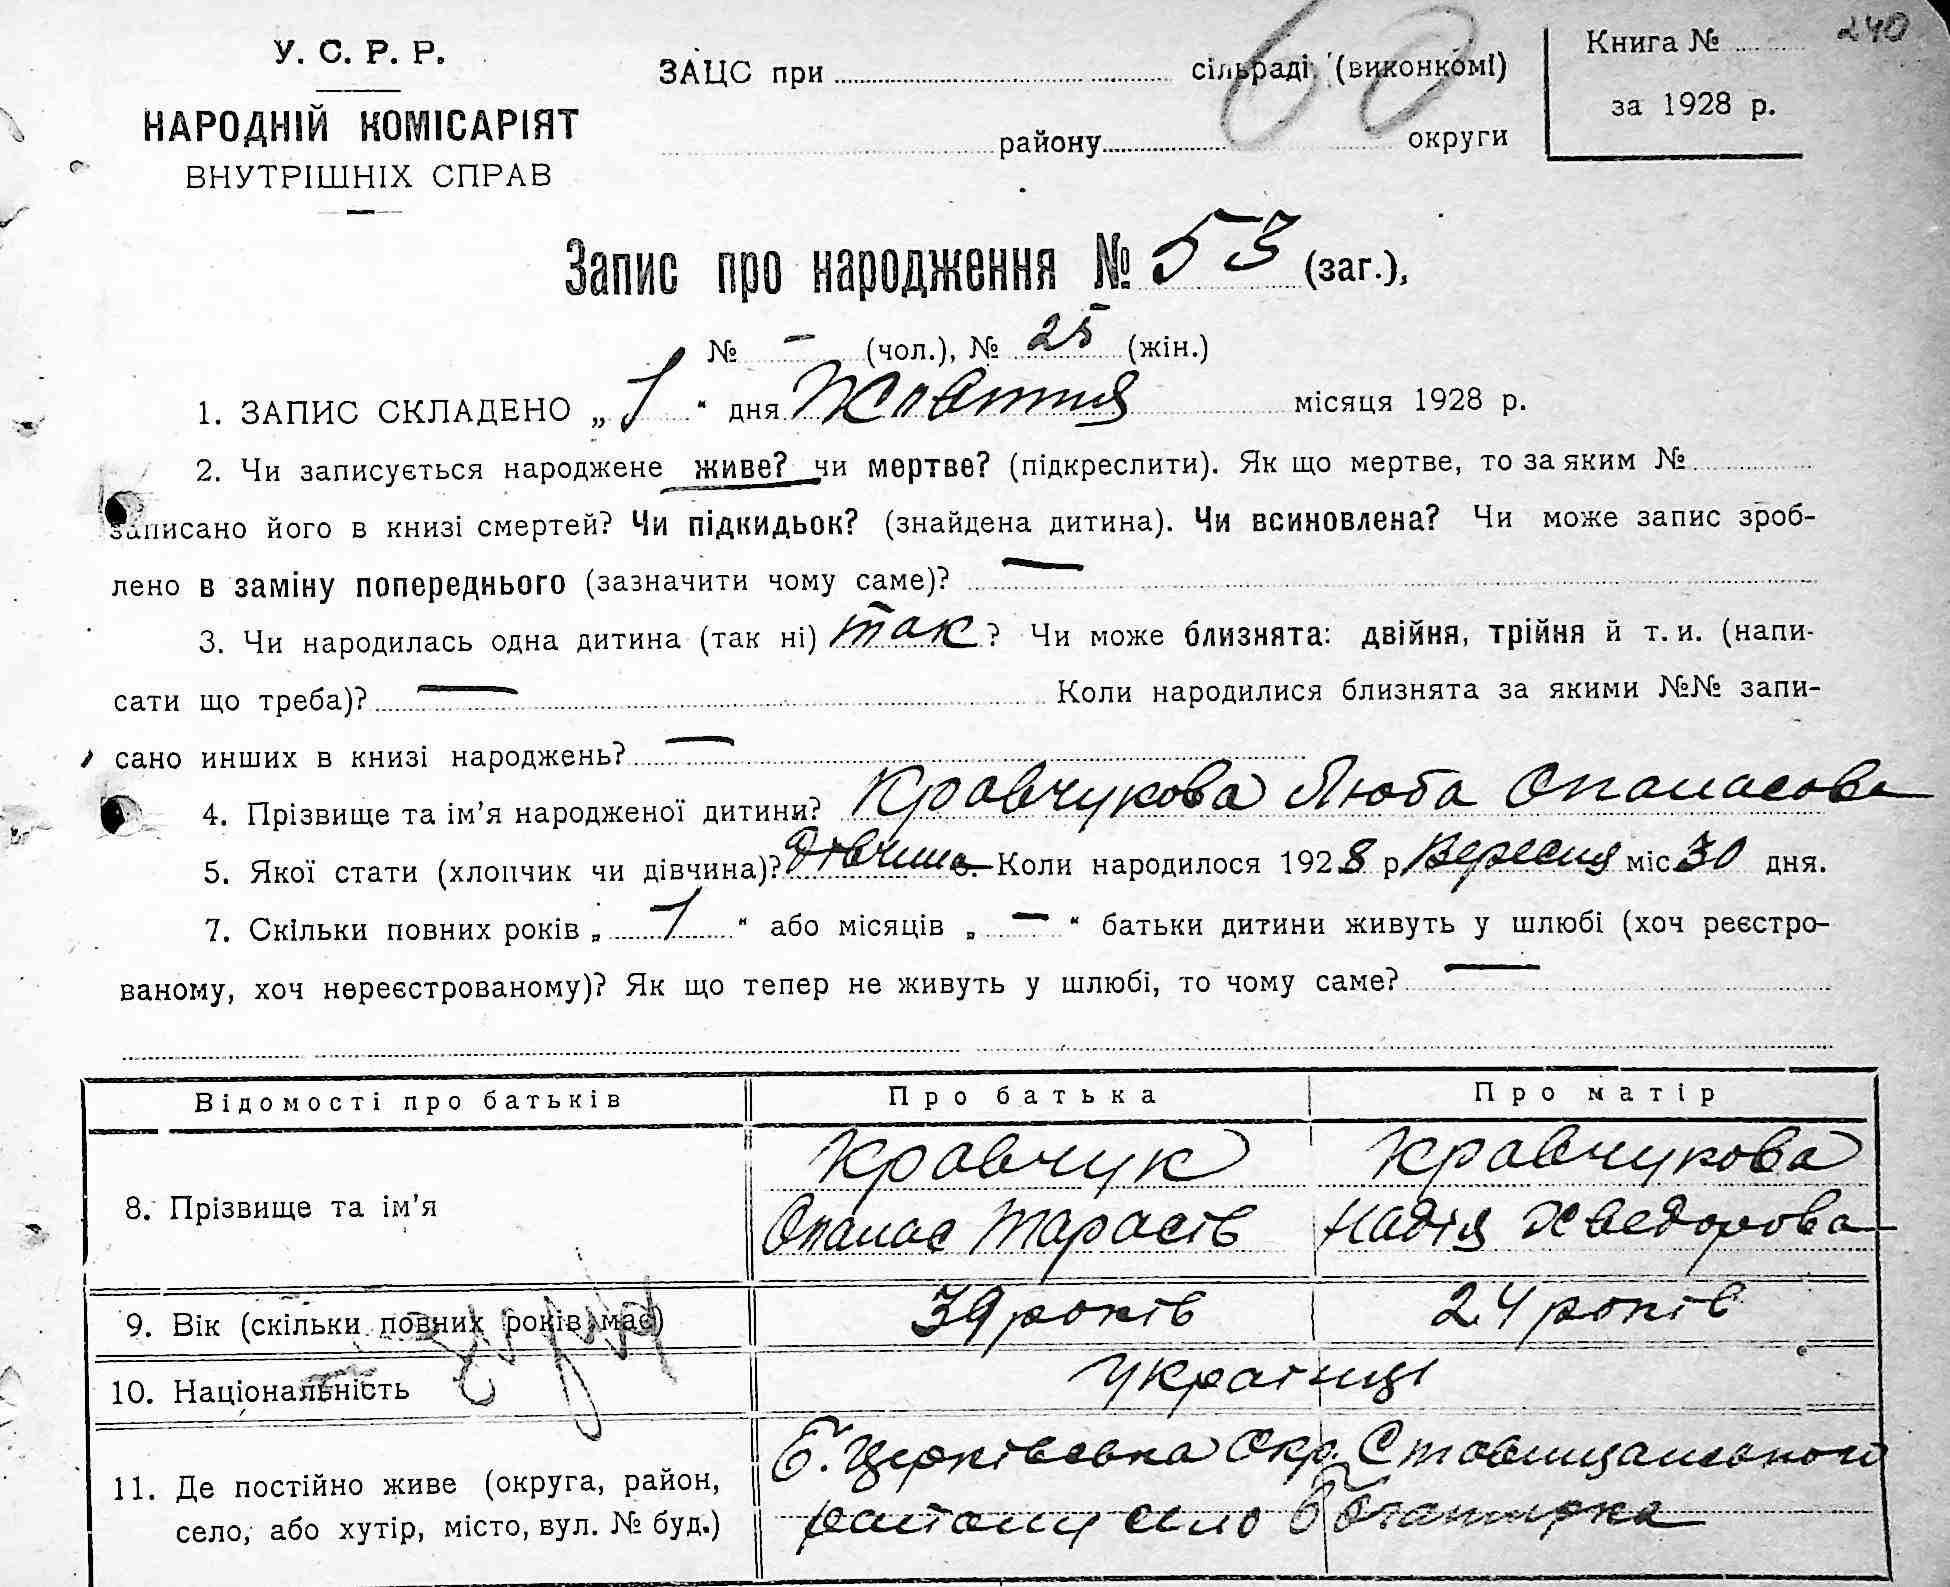 240
У. С. Р. Р.
НАРОДНІЙ КОМІСАРІЯТ
ВНУТРІШНІХ СПРАВ
ЗАЦС при сільраді (виконкомі)
району округи
60
Книга №
за 1928 р.
Запис про народження № 53 (заг.),
№ – (чол.), № 25 (жін.)
1. ЗАПИС СКЛАДЕНО „ 1 “ дня Жовтня місяця 1928 р.
2. Чи записується народжене живе? чи мертве? (підкреслити). Як що мертве, то за яким №
записано його в книзі смертей? Чи підкидьок? (знайдена дитина). Чи всиновлена? Чи може запис зроб-
лено в заміну попереднього (зазначити чому саме)? —
3. Чи народилась одна дитина (так ні) так ? Чи може близнята: двійня, трійня й т. и. (напи-
сати що треба)? — Коли народилися близнята за якими №№ запи-
сано инших в книзі народжень? —
4. Прізвище та ім’я народженої дитини? Кравчукова Люба Опанасова
5. Якої стати (хлопчик чи дівчина)? дівчина Коли народилося 1928 р. Вересня міс 30 дня.
7. Скільки повних років „ 1 “ або місяців „ — “ батьки дитини живуть у шлюбі (хоч реєстро-
ваному, хоч нереєстрованому)? Як що тепер не живуть у шлюбі, то чому саме? —
Відомості про батьків Про батька Про матір
8. Прізвище та ім’я
Кравчук
Опанас Тарасів
Кравчукова
Надія Хведорова
9. Вік (скільки повних років має) 39 років 24 років
10. Національність Українці
11. Де постійно живе (округа, район,
село, або хутір, місто, вул. № буд.)
Б. Церківська Окр. Ставищанського
району село Богатирка